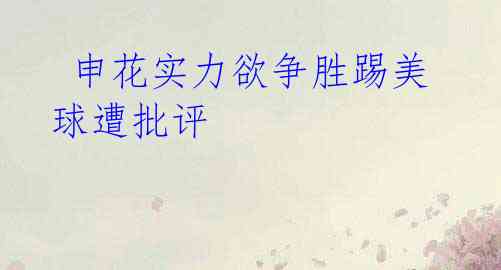 申花实力欲争胜踢美
球遭批评